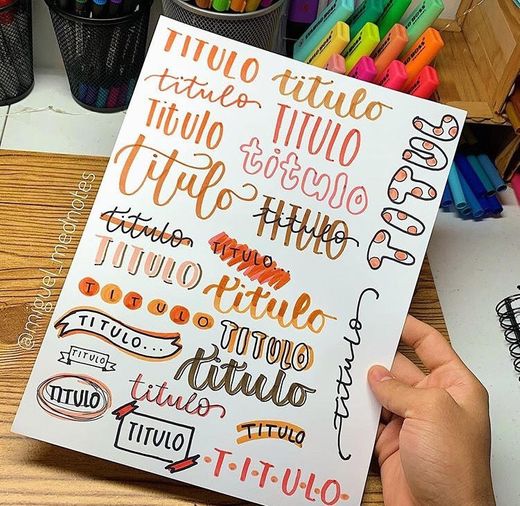 TITULO
titulo
titulo
TITULO
TITULO
titulo
titulo
TITUL
titulo
TITULO
titulo
TITULO...
TITULO
titulo
TITULO
TITULO...
TITULO
TITULO
titulo
titulo
TITULO
titulo
TITULO
TITULO
T·I·T·U·L·O
@miguel_mednotes